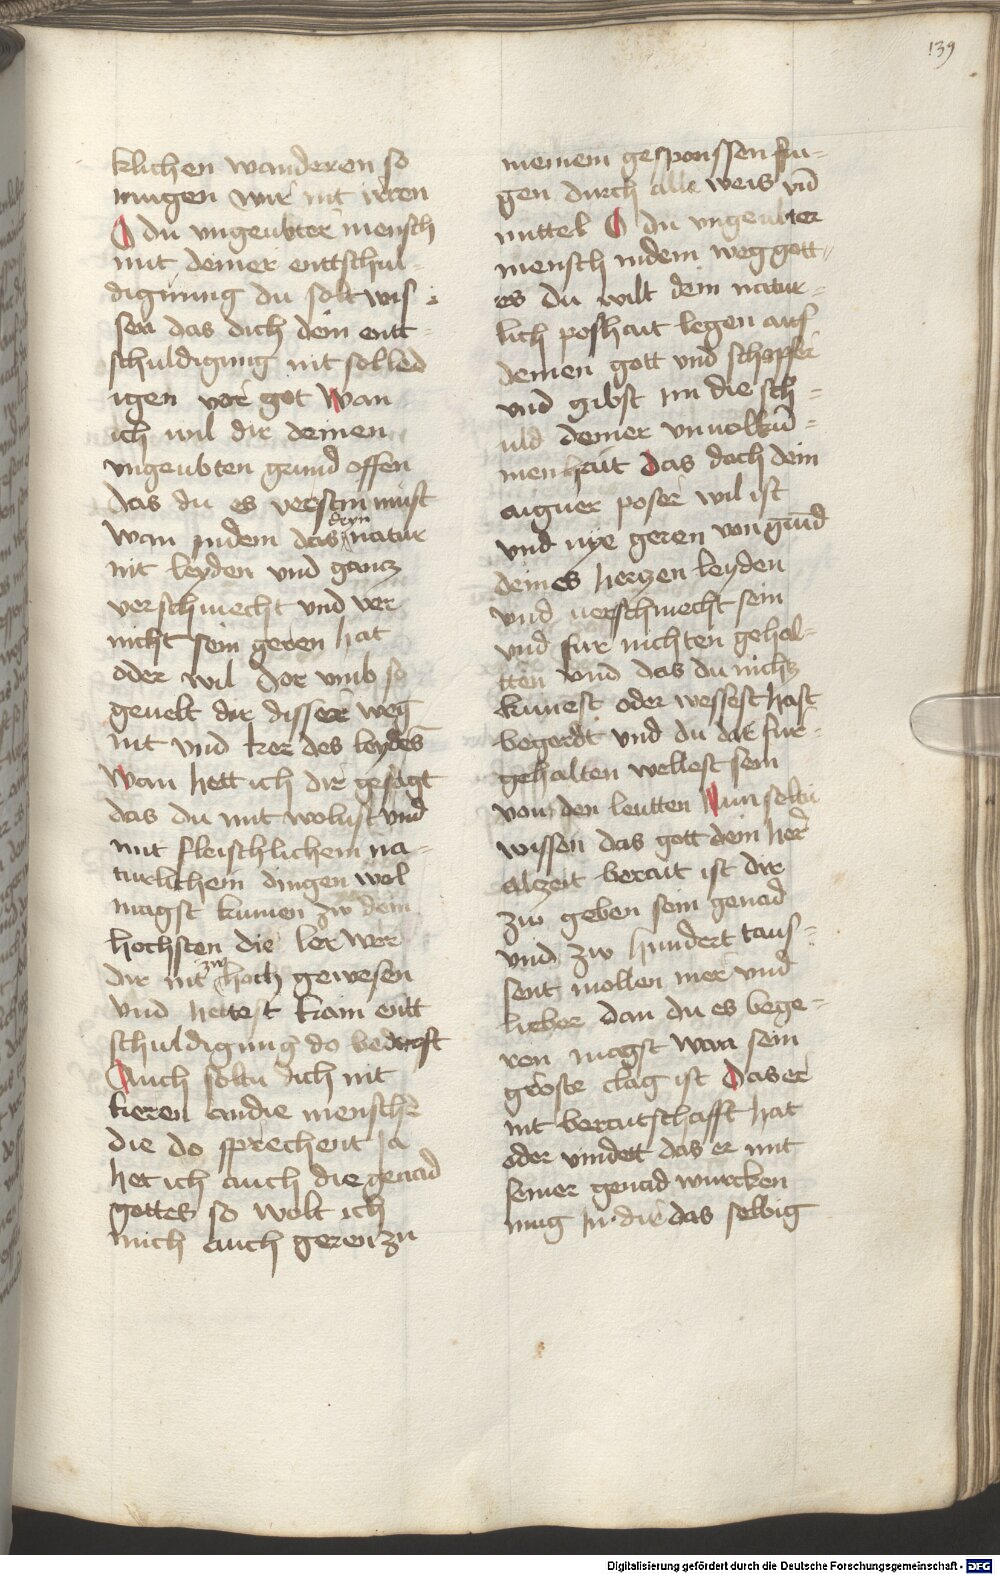 139
klichen wanderen so
mugen wir nit irren
O du ungeubter mensch
mit deiner enttschul-
digunng du solt wis-
sen das dich dein entt-
schuldigung nit sol led
igen vor got Wan
ich wil dir deinen
ungeubten grund offen
das du es versten must
wan indem das deyn natur
nit leyden und gancz
verschmecht und ver
nicht sein geren hat
oder wil dor umb so
gevelt dir disser weg
nit und ker des leydēs
Wan hett ich dir gesagt
das du mit wolust und
mit fleischlichem na-
turlichem dingen wol
magst kumen zw dem
hochsten die ler wer
dir nit zw hoch gewesen
und hettest kain entt
schuldigung do bedurft
Auch soltu dich nit
keren an die menschē
die do sprechent ja
het ich auch die genad
gottes so wolt ich
mich auch geren zu
meinem gesponssen fu-
gen durch alle weis uñ
mittel O du ungeubter
mensch indem weg gott-
es du wilt dein natur-
lich poshait legen auf
deinen gott und schopfer
und gibst im die sch-
uld deiner unvolkū-
menhait Das doch dein
aigner poser wil ist
und nye geren von grūd
deines herczen leyden
und verschmecht sein
und fur nichten gehal-
tten und das du nichz
kunest oder wessest hast
begerdt und du dar fur-
gehalten wellest sein
von den leutten Nun soltu
wissen das gott dein her
alzeit berait ist dir
zw geben sein genad
und zw hundert taus-
sent mollen mer und
lieber dan du es bege-
ren magst wan sein
groste clag ist Das er
nit beraitschafft hat
oder vindett das er mit
seiner genad wurcken
mug in die das selbig
Digitalisierung gefördert durch die Deutsche Forschungsgemeinschaft - DFG